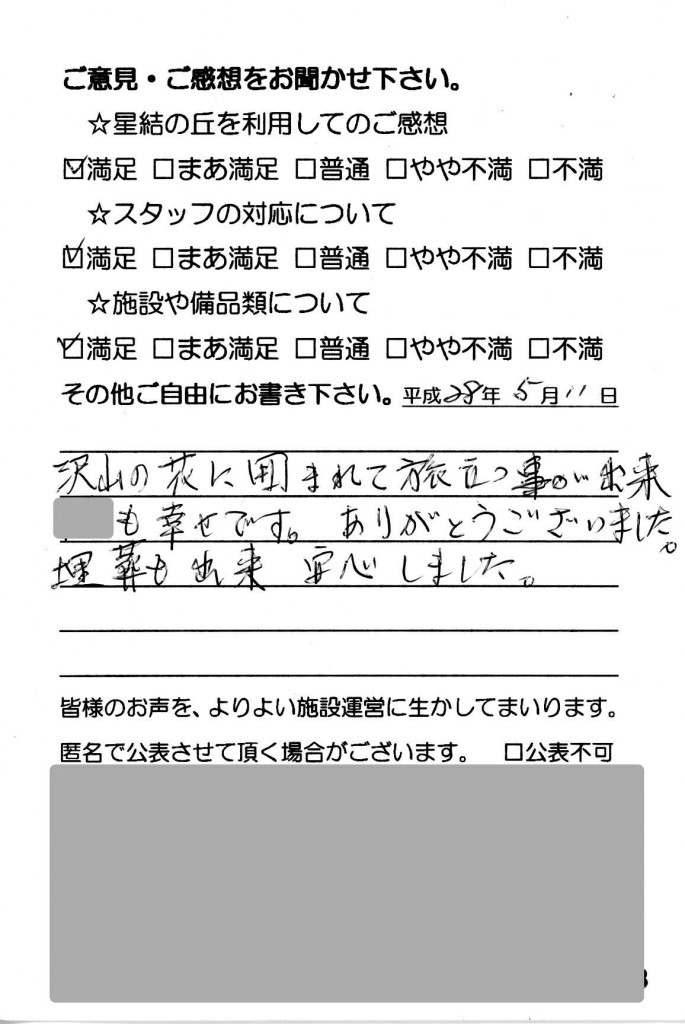 ご意見・ご感想をお聞かせ下さい。
☆星結の丘を利用してのご感想
☑満足 □まあ満足 □普通 □やや不満 □不満
☆スタッフの対応について
☑満足 □まあ満足 □普通 □やや不満 □不満
☆施設や備品類について
☑満足 □まあ満足 □普通 □やや不満 □不満
その他ご自由にお書き下さい。平成28年 5月11日
沢山の花に囲まれて旅立つ事が出来
も幸せです。ありがとうございました。
埋葬も出来 安心しました。
皆様のお声を、よりよい施設運営に生かしてまいります。
匿名で公表させて頂く場合がございます。 □公表不可